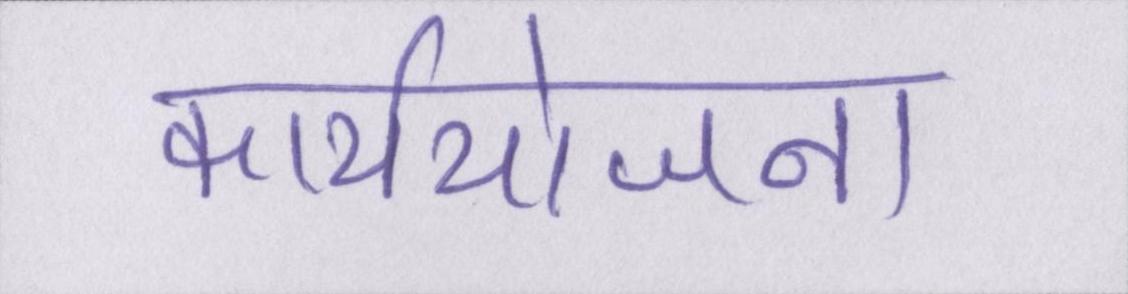 कार्ययोजना